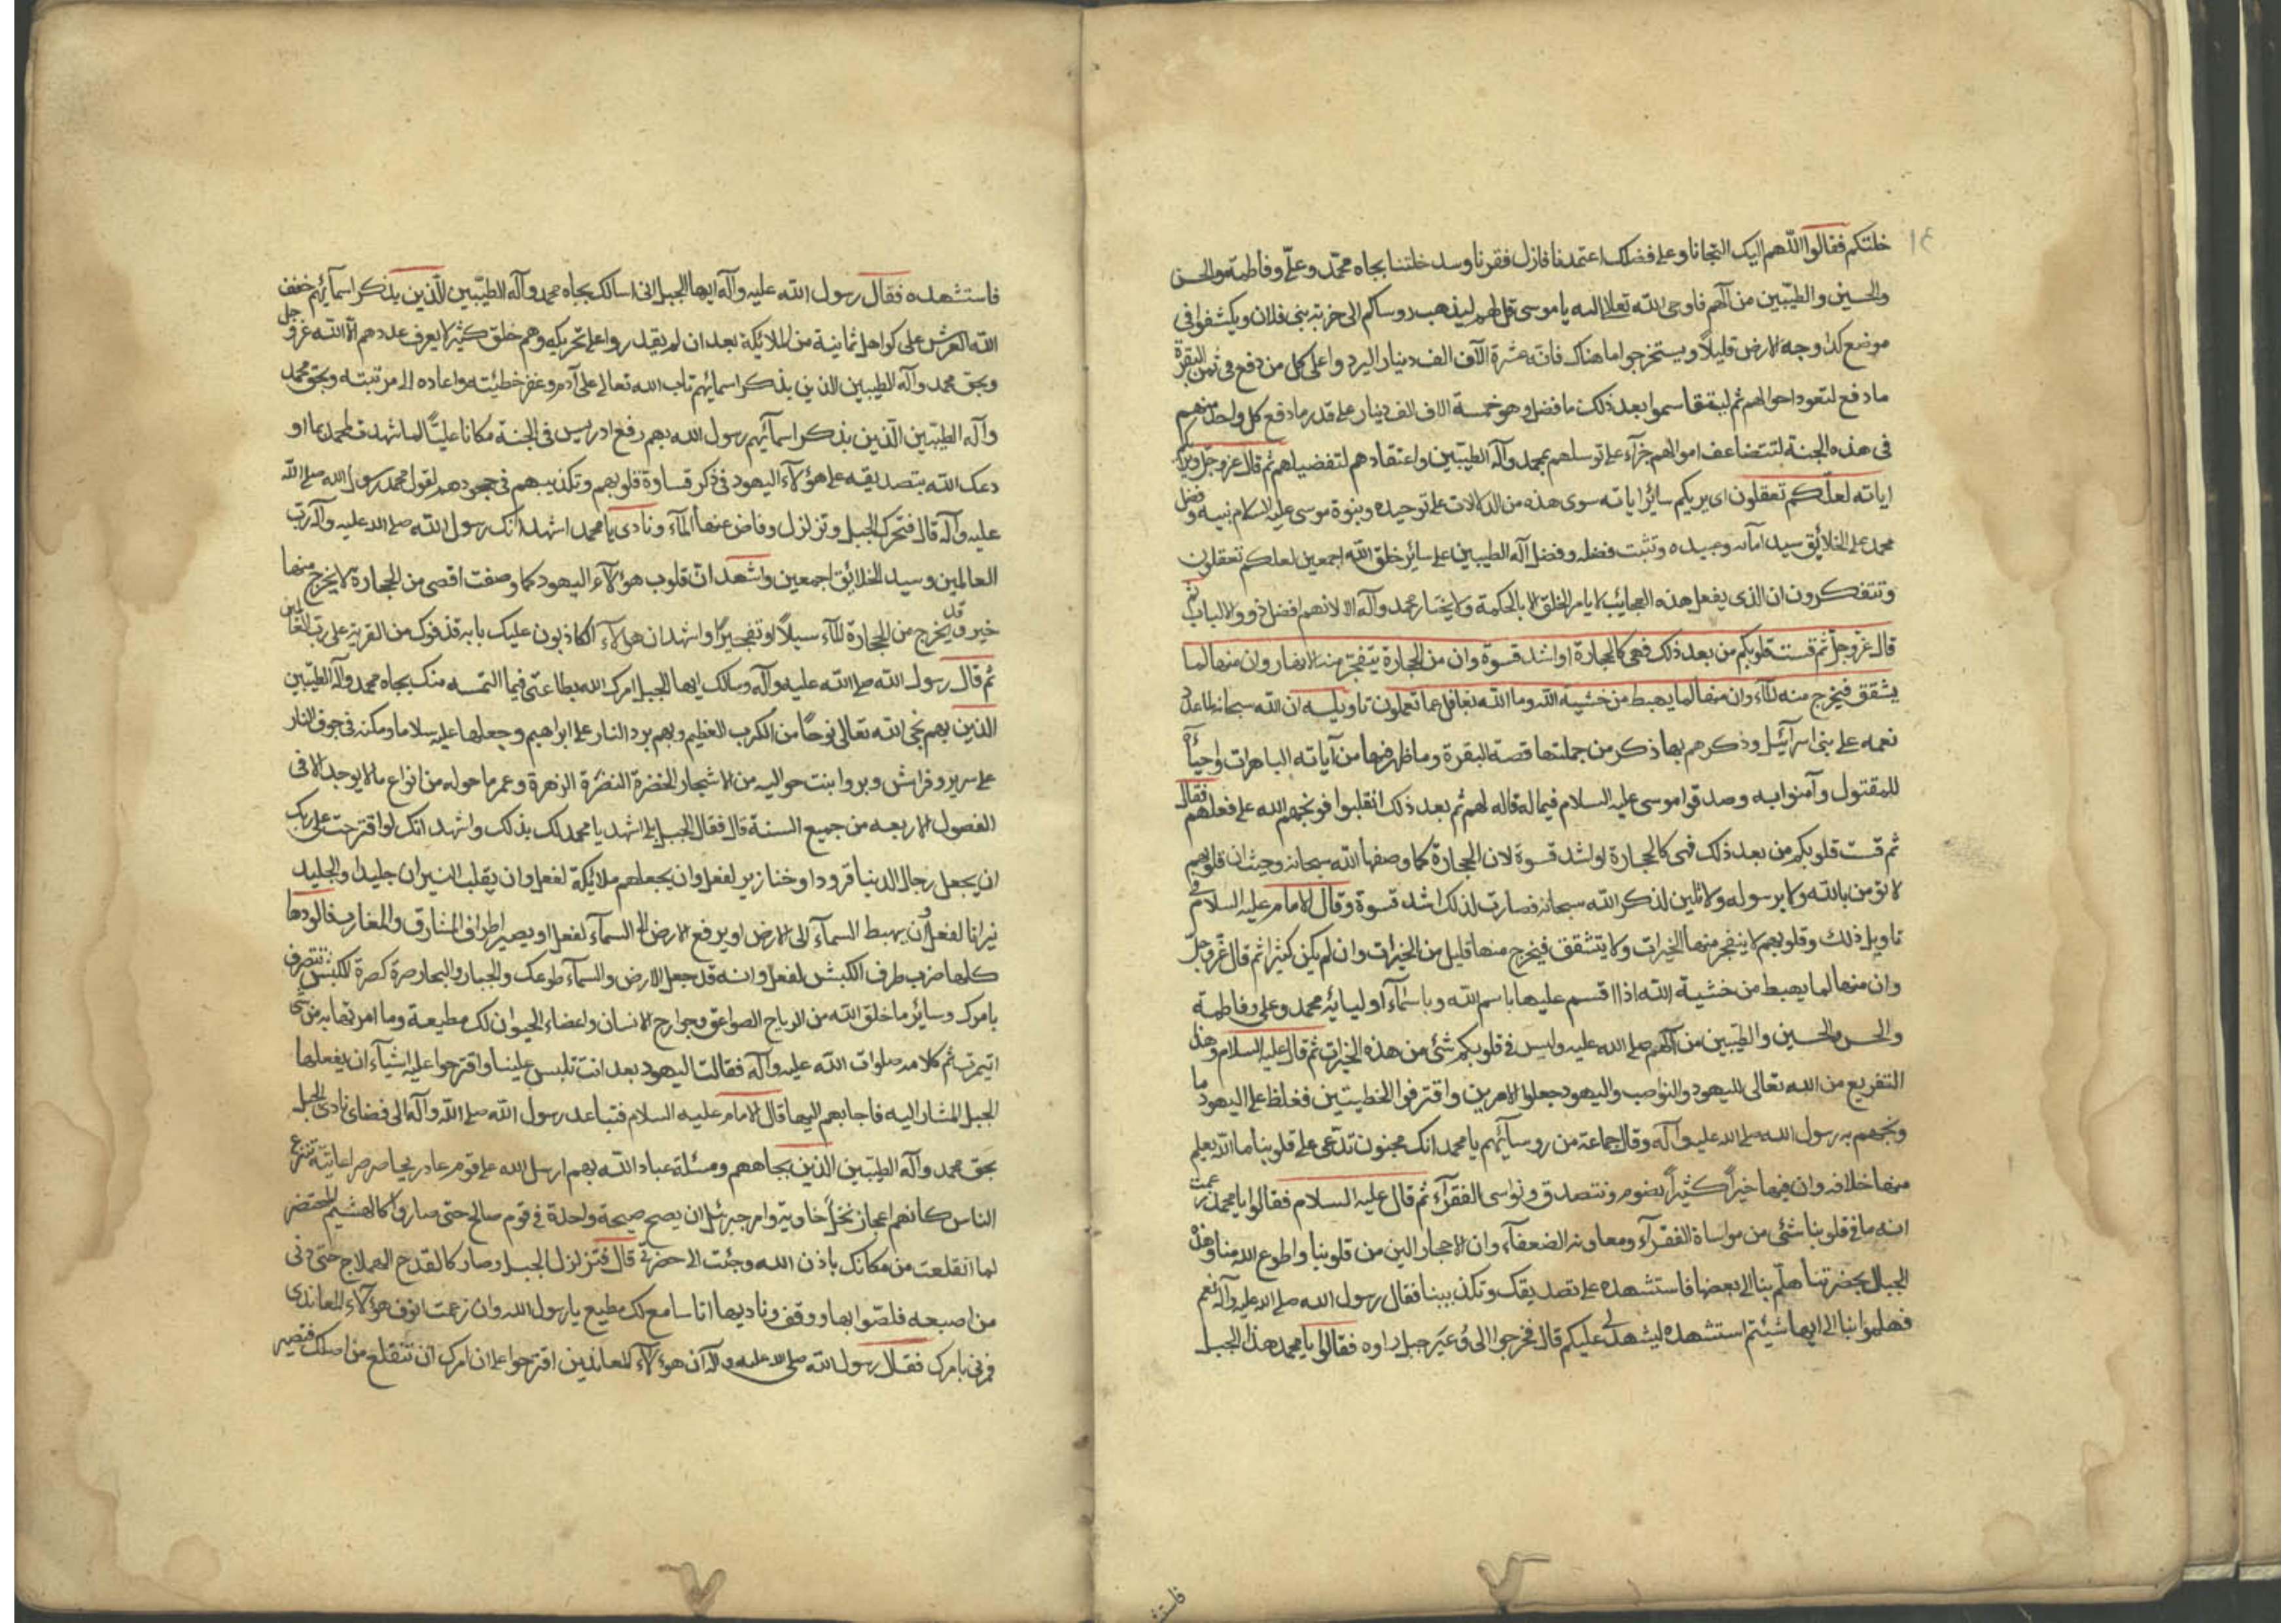 خلتكم فقالوا اللهم اليك التجانا وعلى فضلك اعتمدنا فازل فقرنا وسد خلتنا بجاه محمد وعلي وفاطمة والحسن
والحسين والطيبين من آلهم فاوحى الله تعالى اليه يا موسى قل لهم ليذهب روساكم الى خربة بني فلان ويكشفوا في
موضع كذا وجه الارض قليلا ويستخرجوا ما هناك فانه عشرة الآف الف دينار ليرد واعلى كل من دفع في ثمن البقرة
ما دفع لتعود احوالهم ثم ليتقاسموا بعد ذلك ما فضل وهو خمسة الاف الف دينار على قدر ما دفع كل واحد منهم
في هذه الجنة لتتضاعف اموالهم جزآء على توسلهم بمحمد وآله الطيبين واعتقادهم لتفضيلهم ثم قال عز وجل ويريكم
اياته لعلكم تعقلون اى يريكم سائر اياته سوى هذه من الدلالات على توحيده ونبوة موسى عليه السلام نبيه وفضل
محمد على الخلائق سيد امائه وعبيده وتثبت فضله وفضل آله الطيبين على سائر خلق الله اجمعين لعلكم تعقلون
وتتفكرون ان الذى يفعل هذه العجائب لا يامر الخلق الا بالحكمة ولا يختار محمد وآله الا لانهم افضل ذوو الالباب ثم
قال عز وجل ثم قست قلوبكم من بعد ذلك فهى كالحجارة او اشد قسوة وان من الحجارة يتفجر منه الانهار وان منها لما
يشقق فيخرج منه المآء وان منها لما يهبط من خشية الله وما الله بغافل عما تعملون تاويله ان الله سبحانه لما عدد
نعمه على بنى اسرآئيل وذكرهم بها ذكر من جملتها قصة البقرة وما ظهر فيها من آياته الباهرات واحيآ
للمقتول وآمنوا به وصدقوا موسى عليه السلام فيما له قاله لهم ثم بعد ذلك انقلبوا فوبخهم الله على فعلهم فقال
ثم قست قلوبكم من بعد ذلك فهى كالحجارة او اشد قسوة لان الحجارة كما وصفها الله سبحانه وحيث ان قلوبهم
لا تؤمن بالله ولا برسوله ولا تلين لذكر الله سبحانه فصارت لذلك اشد قسوة وقال الامام عليه السلام في
تاويل ذلك وقلوبهم لا ينفجر منها الخيرات ولا يتشقق فيخرج منها قليل من الخيرات وان لم يكن كثيرا ثم قال عز وجل
وان منها لما يهبط من خشية الله اذا اقسم عليها باسم الله وباسمآء اوليائه محمد وعلى وفاطمة
والحسن والحسين والطيبين من آلهم صلى الله عليه وليس في قلوبكم شئ من هذه الخيرات ثم قال عليه السلام وهذ
التقريع من الله تعالى لليهود والنواصب واليهود جعلوا الامرين واقترفوا الخطيتين فغلظ على اليهود ما
وبخهم به رسول الله صلى الله عليه وآله وقال جماعة من روسآئهم يا محمد انك مجنون تدعى على قلوبنا ما الله يعلم
منها خلافه وان فيها خيرا كثيرا نصوم ونتصدق ونواسى الفقرآء ثم قال عليه السلام فقالوا يا محمد زعمت
انه ما في قلوبنا شئ من مواساة الفقرآء ومعاونة الضعفآء وان الاحجار الين من قلوبنا واطوع الله منا وهذه
الجبال بحضرتنا هلم بنا الى بعضها فاستشهده على تصديقك وتكذيبنا فقال رسول الله صلى الله عليه وآله نعم
فهلموا بنا الى ايها شئتم استشهده ليشهد لى عليكم قال فخرجوا الى وعر جبل راوه فقالوا يا محمد هذا الجبل
فاستشهده فقال رسول الله عليه وآله ايها الجبل انى اسالك بجاه محمد وآله الطيبين الذين بذكر اسمآئهم خفف
الله العرش على كواهل ثمانية من الملائكة بعد ان لم يقدروا على تحريكه وهم خلق كثير لا يعرف عددهم الا الله عز وجل
وبحق محمد وآله الطيبين الذين بذكر اسمائهم تاب الله تعالى على آدم وغفر خطيئته واعاده الى مرتبته وبحق محمد
وآله الطيبين الذين بذكر اسمآئهم رسول الله بهم رفع ادريس في الجنة مكانا عليا لما شهدت لمحمد بما او
دعك الله بتصديقه على هؤلآء اليهود في ذكر قساوة قلوبهم وتكذيبهم في جحودهم لقول محمد رسول الله صلى الله
عليه وآله قال فتحرك الجبل وتزلزل وفاض عنها المآء ونادى يا محمد اشهد انك رسول الله صلى الله عليه وآله رب
العالمين وسيد الخلائق اجمعين واشهد ان قلوب هؤلآء اليهود كما وصفت اقصى من الحجارة لا يخرج منها
خير وقد يخرج من الحجارة المآء سيلا او تفجيرا واشهد ان هؤلآء الكاذبون عليك بابه قذفوك من الفرية على رب العالمين
ثم قال رسول الله صلى الله عليه وآله وسالك ايها الجبل امرك الله بطاعتى فيما التمسه منك بجاه محمد وآله الطيبين
الذين بهم نجى الله تعالى نوحا من الكرب العظيم وبهم برد النار على ابراهيم وجعلها عليه سلاما ومكنه في جوف النار
على سرير وفراش وبروا بنت حواليه من الاشجار الخضرة النضرة الزهرة وعمر ما حوله من انواع مالا يوجد الا فى
الفصول الاربعه من جميع السنة قال فقال الجبل بلى اشهد يا محمد لك بذلك واشهد انك لو اقترحت على ربك
ان يجعل رجال الدنيا قرودا وخنازير لفعل وان يجعلهم ملائكة لفعل وان يقلب النيران جليدا والجليد
نيرانا لفعل وان يهبط السمآء الى الارض او يرفع الارض الى السمآء لفعل او يصير اطراف المشارق والمغارب فالودها
كلها ضرب طرف الكبش لفعل وانه قد جعل الارض والسمآء طوعك والجبار والبحار صرة كصرة للكبش تتصرف
بامرك وسائر ما خلق الله من الرياح الصواعق وجوارح الانسان واعضاء الحيوان لك مطيعة وما امرتها به من شئ
اتيمرت ثم كلامه صلوات الله عليه وآله فقالت اليهود بعد انت تلبس علينا واقترحوا عليه اشيآء ان يفعلها
الجبل المشار اليه فاجابهم اليها قال الامام عليه السلام فتباعد رسول الله صلى الله وآله الى فضاى نادى الجبل
بحق محمد وآله الطيبين الذين بجاههم ومسئلة عباد الله بهم ارسل الله على قوم عاد ريحا صرصرا عاتية تنزع
الناس كانهم اعجاز نخل خاوية وامر جبرئل ان يصح صيحة واحدة في قوم صالح حتى صاروا كالهشيم المحتضر
لما انقلعت من مكانك باذن الله وجئت الى حضرتى قال فتزلزل الجبل وصار كالقدح الهملاج حتى دنى
من اصبعه فلصقوا بها ووقف وناديها انا سامع لك مطيع يا رسول الله وان زعمت انوف هؤلآء المعاندى
فمرنى بامرك فقال رسول الله صلى الله عليه وآله ان هؤلآء المعاندين اقترحوا على ان امرك ان تنقلع من اصلك فتصير